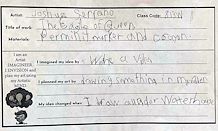 Artist: Joshua Serrano Class Code: A15W
Title of work: The Battle of Queen
Materials: Permihit marker and crayon.
I am an
Artist
IMAGINEER,
I ENVISION and
plan my art using
my Artistic
MIND
I imagined my idea by I Wache a Video
I planned my art by drawing something in my paper
My idea changed when I draw a under Water